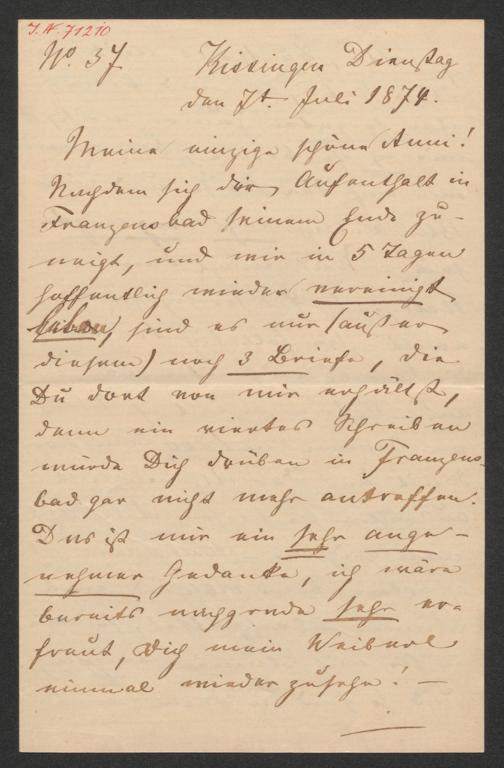 J. N. 71210
No. 37
Kissingen Dienstag
den 7t. Juli 1874.
Meine einzige schöne Anni!
Nachdem sich der Aufenthalt in
Franzensbad seinem Ende zu-
neigt, und wir in 5 Tagen
hoffentlich wieder vereinigt
leben, sind es nur (außer
diesem) noch 3 Briefe, die
Du dort von mir erhältst,
denn ein viertes Schreiben
würde Dich drüben in Franzens-
bad gar nicht mehr antreffen.
Das ist mir ein sehr ange-
nehmer Gedanke, ich wäre
bereits nachgerade sehr er-
freut, Dich mein Weiberl
einmal wieder zusehn! —